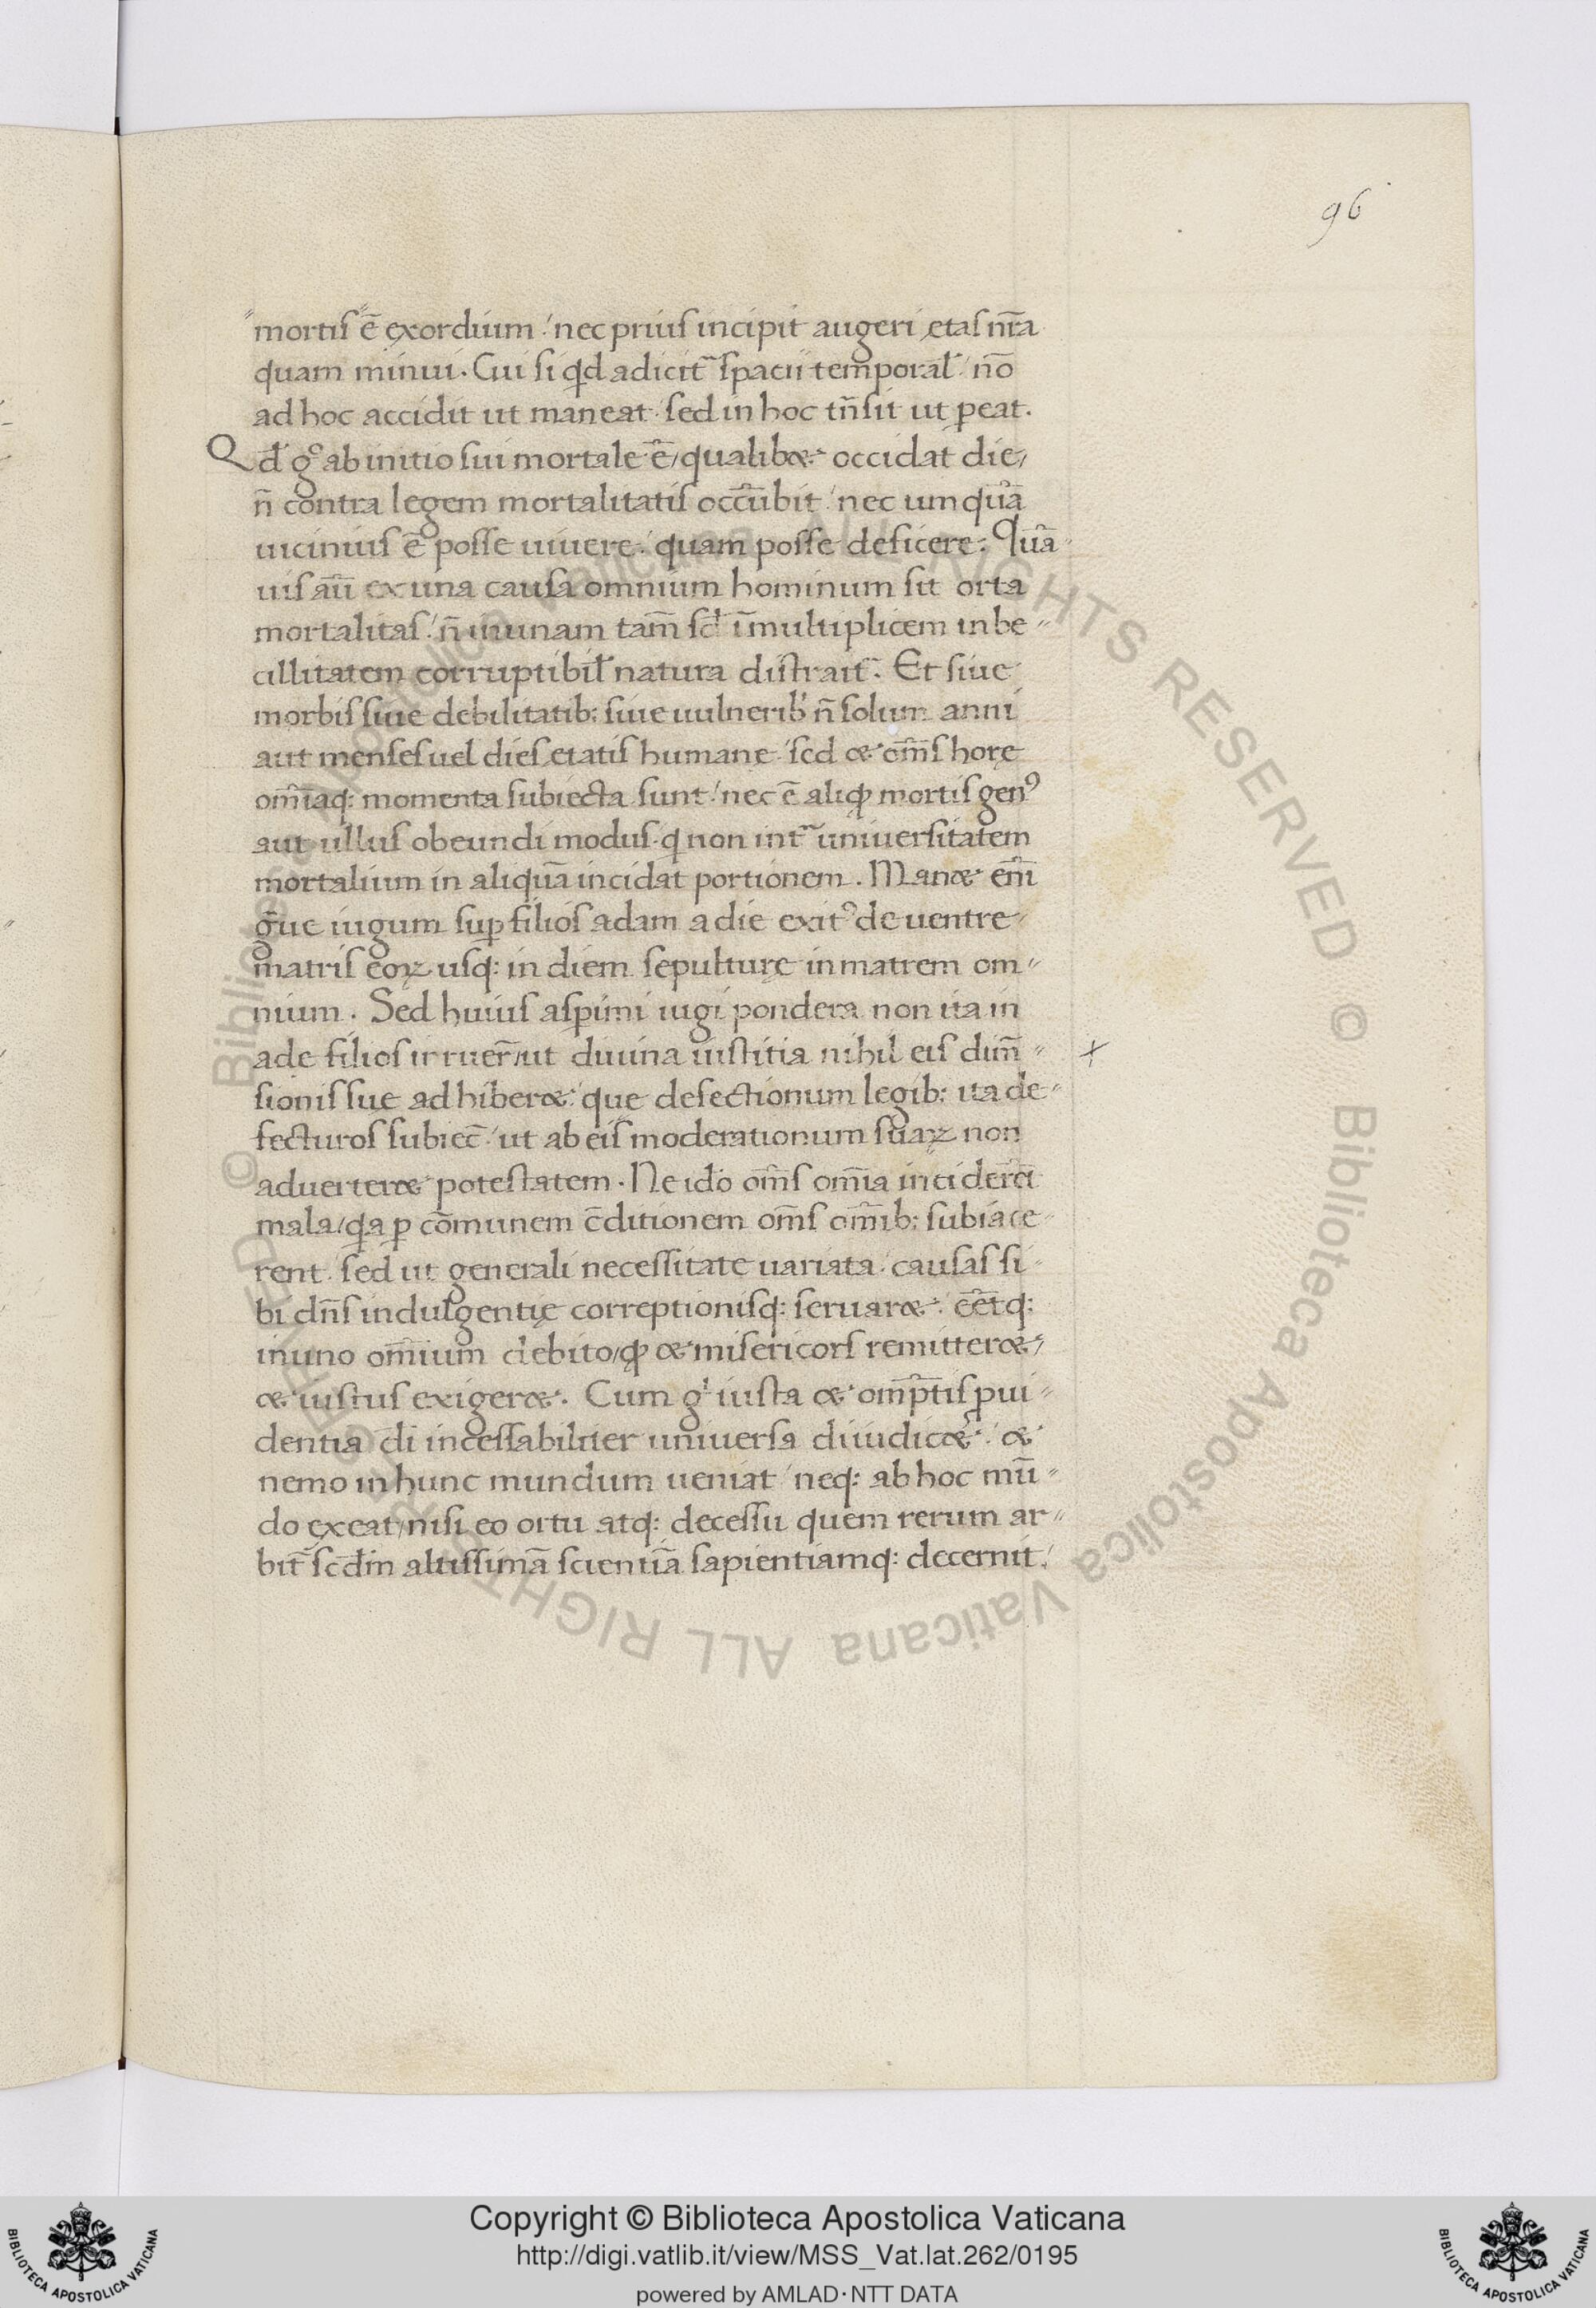 96
mortis ē exordium · nec prius incipit augeri ętas nr̄a
quam minui. Cui si qd adicit᷑ spacii temporal̄ · nō
ad hoc accidit ut maneat · sed in hoc tn̄sit ut ꝑeat.
Qd̄ gͦ ab initio sui mortale ē / qualibet occidat die /
n̄ contra legem mortalitatis occūbit · nec umquā
uicinius ē posse uiuere · quam posse deficere. Quā
uis aū ex una causa omnium hominum sit orta
mortalitas · n̄ in unam tam̄ sꝫ ī multiplicem inbe-
cillitatem corruptibil̄ natura distrait᷑. Et siue
morbis siue debilitatib: siue uulnerib; n̄ solum anni
aut menses uel dies ętatis humanę · sed et om̄s horę
om̄iaq: momenta subiecta sunt · nec ē aliqđ mortis gen⁹
aut ullus obeundi modus · q̇ non int᷑ uniuersitatem
mortalium in aliquā incidat portionem. Manet em̄
g̃ue iugum suꝑ filios adam a die exit⁹ de uentre
matris eoꝝ usq: in diem sepulturę in matrem om-
nium. Sed huius asꝑimi iugi pondera non ita in
ade filios irruer̄ / ut diuina iustitia nihil eis dim̄-
sionis sue adhiberet · que defectionum legib: ita de-
fecturos subiec̄ · ut ab eis moderationum suaꝝ non
aduerteret potestatem. Ne ido om̄s om̄ia inciderēt
mala / qa ꝑ cōmunem c̄ditionem om̄s om̄ib: subiace-
rent · sed ut generali necessitate uariata · causas si-
bi dn̄s indulgentię correptionisq: seruaret · eētq:
in uno om̄ium debito / qđ et misericors remitteret /
et iustus exigeret. Cum gͥ iusta et om̄ptīs ꝓui-
dentia di incessabiliter uniuersa diiudicet · et
nemo in hunc mundum ueniat · neq: ab hoc mū-
do exeat / nisi eo ortu atq: decessu quem rerum ar-
bit̄ scdm altissimā scientiā sapientiamq: decernit ·
Copyright © Biblioteca Apostolica Vaticana
http://digi.vatlib.it/view/MSS_Vat.lat.262/0195
powered by AMLAD·NTT DATA
BIBLIOTECA APOSTOLICA VATICANA
BIBLIOTECA APOSTOLICA VATICANA
© Biblioteca Apostolica Vaticana ALL RIGHTS RESERVED © Biblioteca Apostolica Vaticana ALL RIGHTS RESERVED